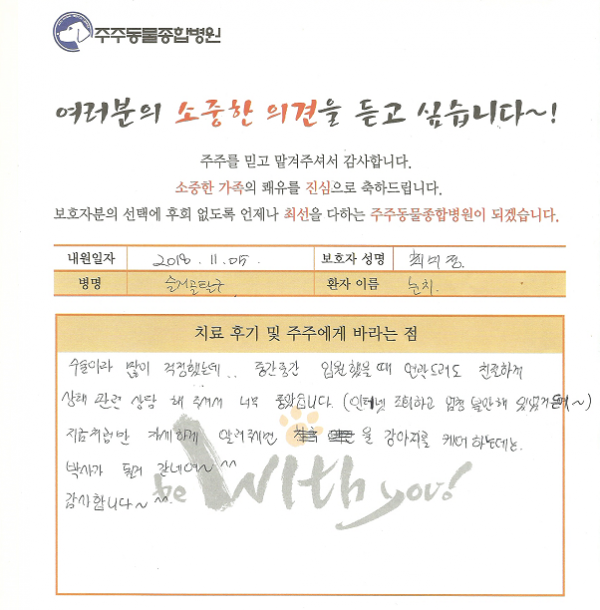 주주동물종합병원
여러분의 소중한 의견을 듣고 싶습니다~!
주주를 믿고 맡겨주셔서 감사합니다.
소중한 가족의 쾌유를 진심으로 축하드립니다.
보호자분의 선택에 후회 없도록 언제나 최선을 다하는 주주동물종합병원이 되겠습니다.
내원일자 2018.11.05. 보호자 성명 최미정
병명 슬개골탈구 환자 이름
치료 후기 및 주주에게 바라는 점
수술이라 많이 걱정했는데.. 중간중간 입원했을때 연락드려도 친절하게
상태 관련 상담 해 주셔서 너무 좋았습니다. (인터넷 조회하고 엄청 불안해
지금처럼만 자세하게 알려주시면 을 강아지를 케어 하는데는.
박사가 될거
감사합니다~
be With you!